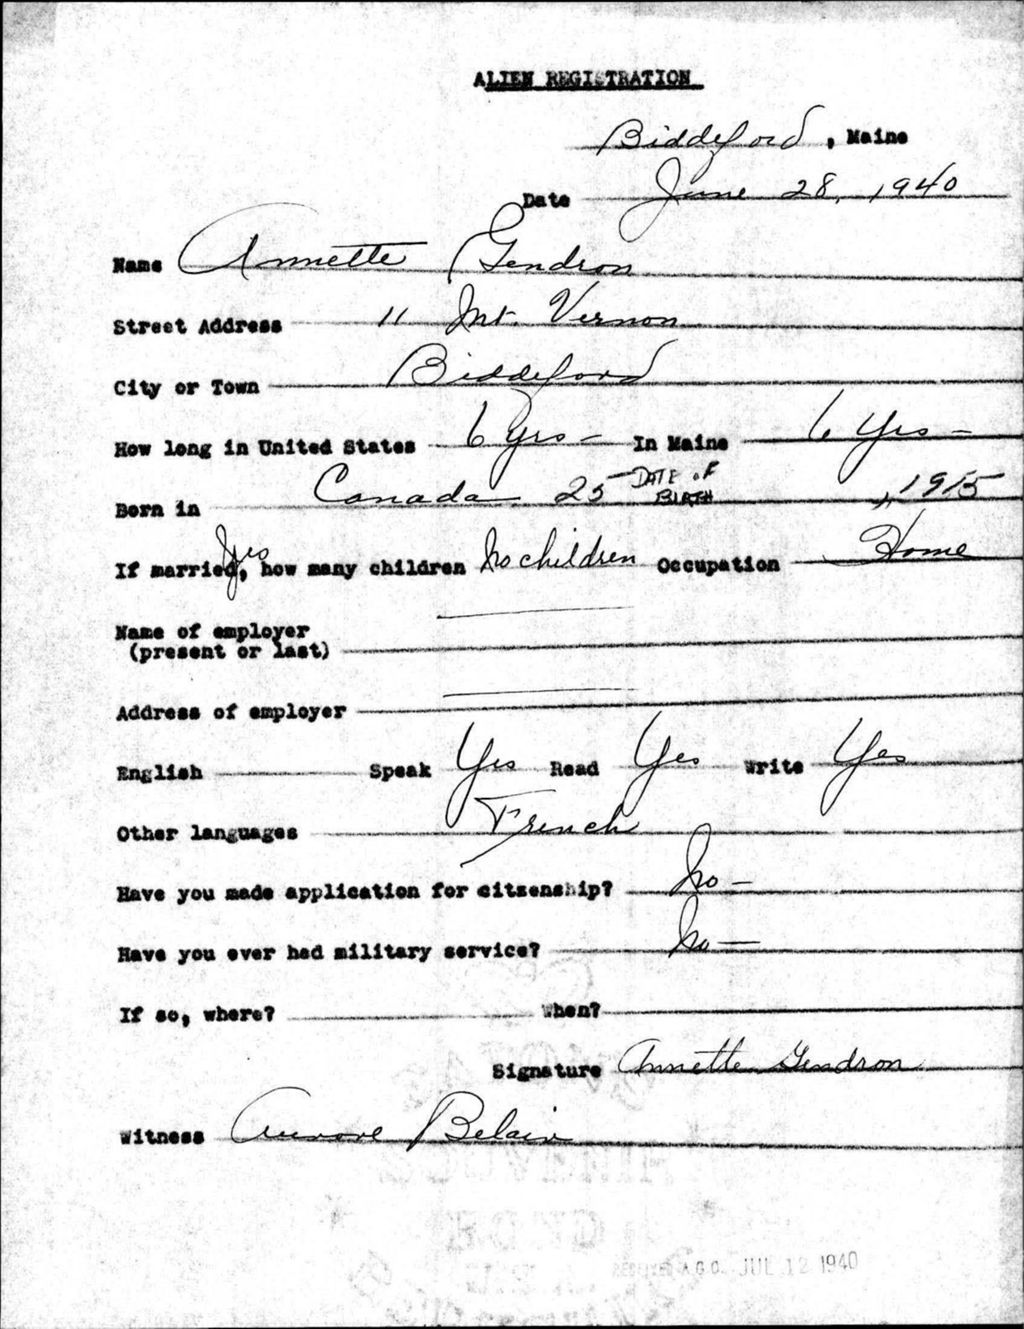 ALIEN REGISTRATION
Biddeford, Maine
Date June 28, 1940
Name Annette Gendron
Street Address 11 Mt. Vernon
City or Town Biddeford
How long in United States 6 Yrs - In Maine 6 Yrs -
Born in Canada 25 DATE OF BIRTH , 1915
If married, Yes how many children No children Occupation Home
Name of employer
(present or last)
Address of employer
English Speak Yes Read Yes Write Yes
Other languages French
Have you made application for citzenship? No -
Have you ever had military service? No -
If so, where? When?
Signature Annette Gendron
Witness Aurore Belair
A.G.O. JUL 12 1940